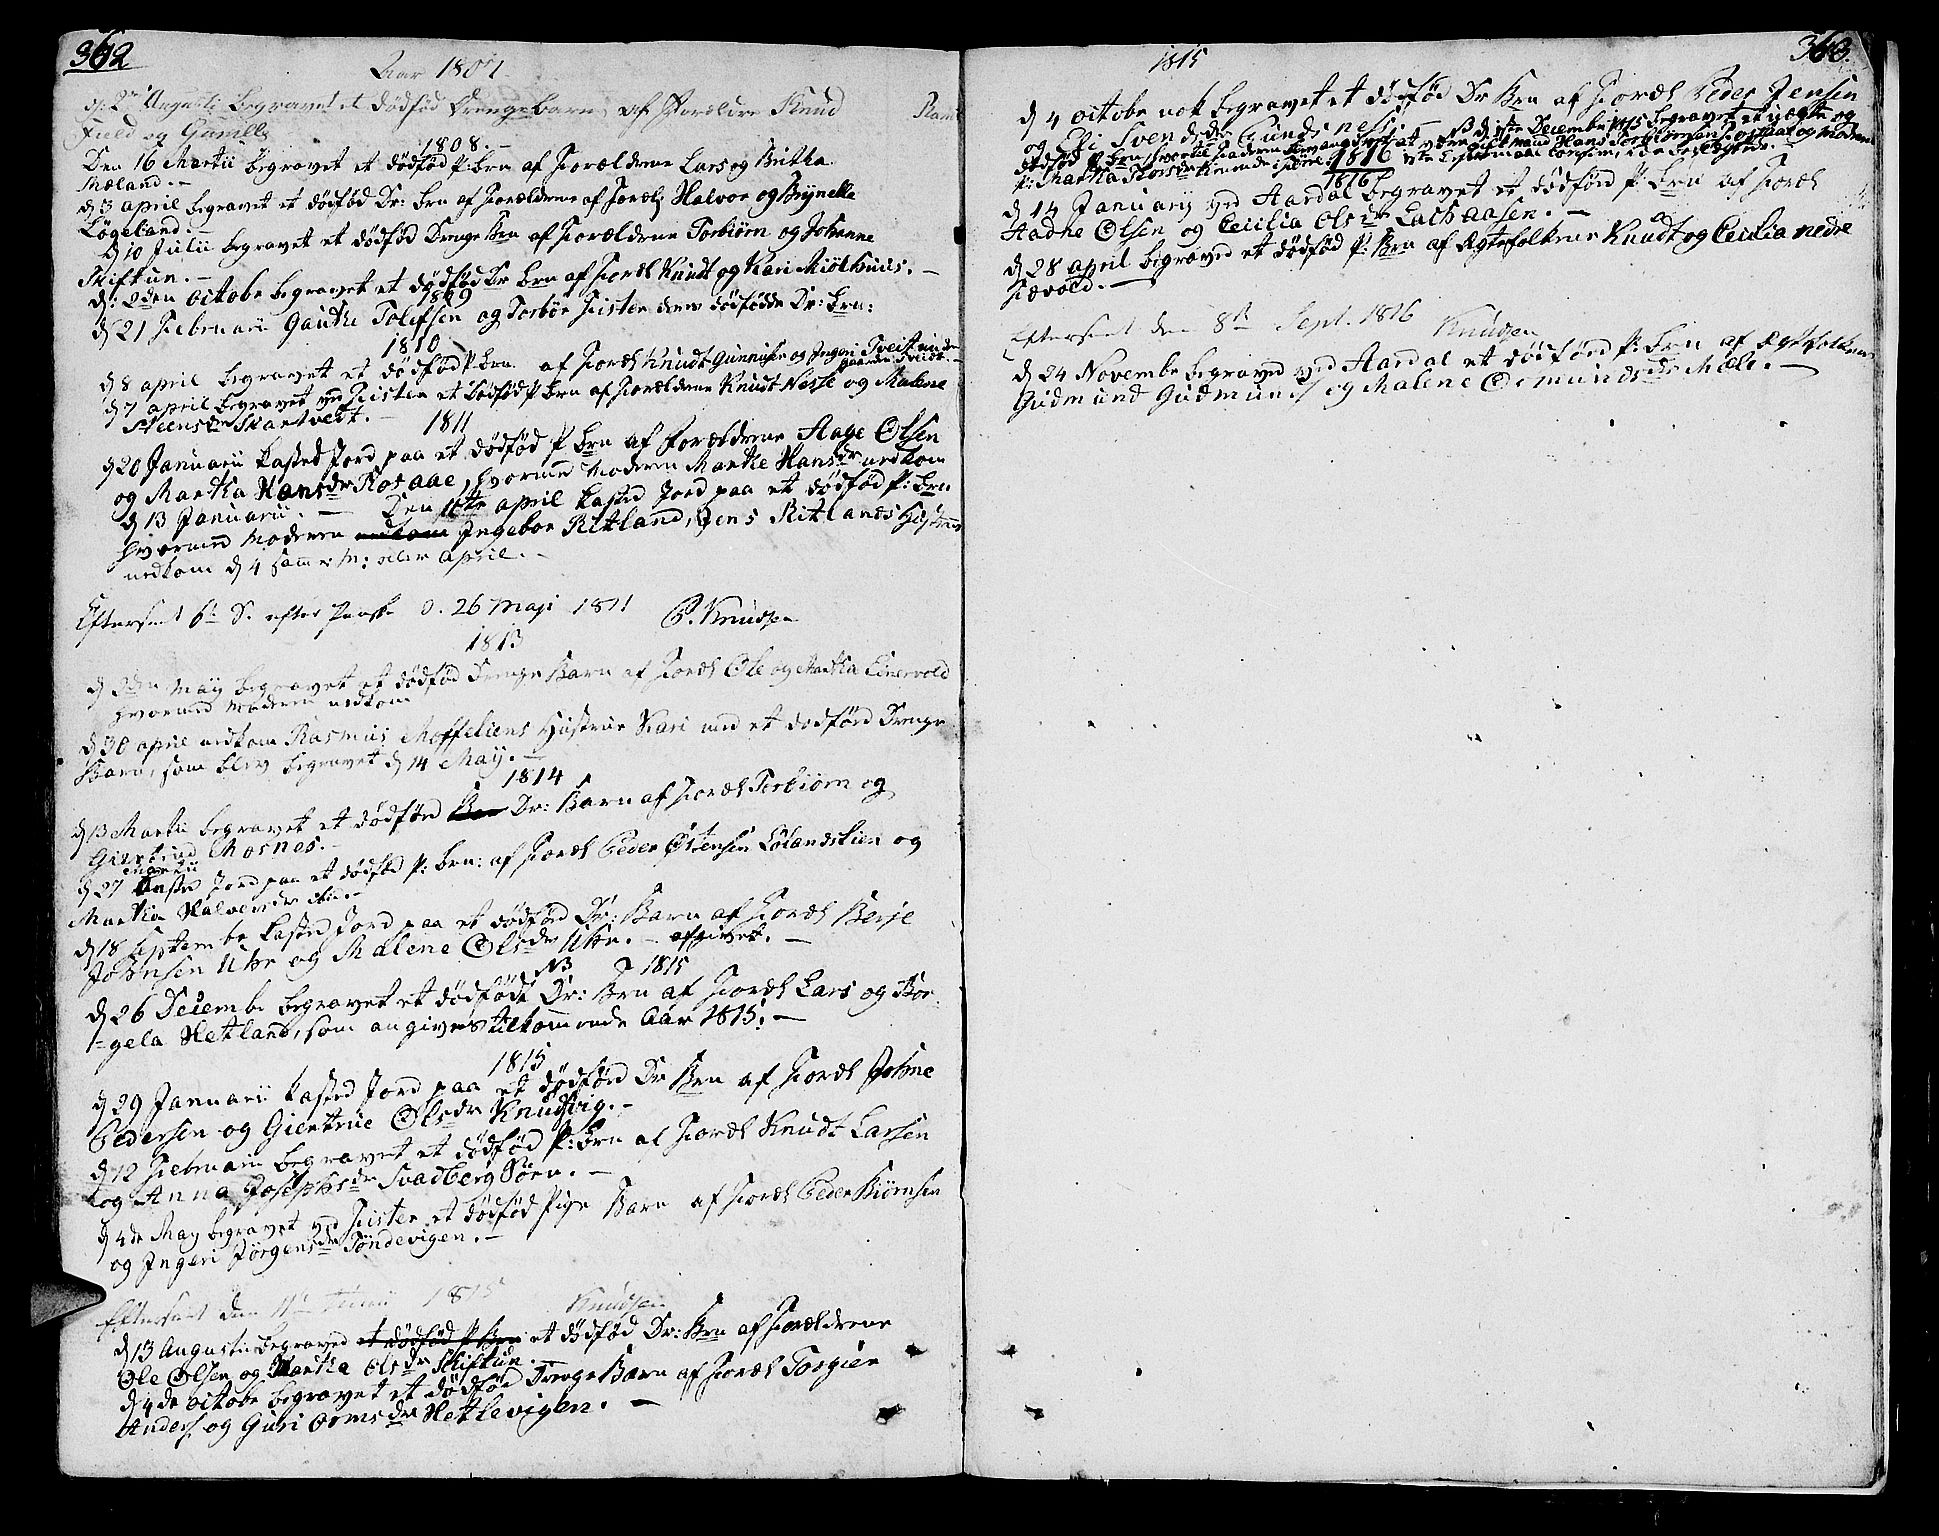 362
Aar 1807.
d. 2 Augusti begravet et dødfød Drengebarn af Forældre Knud
Fuld og Gunilla
1808.-
Den 16 Martii begravet et dødfød P: Brn af Forældrene Lars og Britha
Mæland.-
d 3 april begravet et dødfød Dr: brn af Forældrene af Foræl: Halvor og Brynella
Løgeland.-
d 10 Julii begravet et dødfød Drenge Brn af Forældrene Torbiørn og Johanne
Skiftun.-
d: 2den octobr begravet et dødfød Dr brn af Foræl Knudt og Kari Miølhuus.-
1809
d 21 Februarii Gauthe Tolefsen og Torbør Fister deres dødfødde Dr: brn:
1810
d 8 april begravet et dødfød P. brn. af Foræl Knudt Gunnersen og Ingeri Tveit
d 7 april begravet ved Fister et dødfød P brn af Forældrene Knudt Nesse og Malene
Steensdr Skartvedt.-
1811
d 20 Januarii kasted Jord paa et dødfød P brn af Forældrene Aage Olsen
og Martha Hansdr Rosaae, hvormed Moderen Marthe Hansdr nedkom
d 13 Januarii.- Den 16te april kasted Jord paa et dødfød P: brn
hvormed Moderen nedkom Ingebor Ritland, Jens Ritlands Hustrue
nedkom d 4 samme M: eller april.-
Efterseet 6te S. efter Paaske d. 26 Maji 1811 P. Knudsen
1813
d 2den May begravet et dødfød Drenge Barn af Foræl Ole og Martha
hvormed Moderen nedkom
d 30 april nedkom Rasmus Moffeliens Hustrue Kari med et dødførd Drenge
Barn, som blev begravet d 14 May.-
1814
d 13 Martii begravet et dødførd Brn Dr: Barn af Foræl Torbiørn og
Giertrud Mosnes.-
Martii
d 27 kasted Jord paa et dødfød P: brn: af Foræl Peder Østensen Lølandslien og
Martha Halvorsdr ibid.-
d 18 Septembr kasted Jord paa et dødførd Dr: Barn af Foræl Berje
Johnsen Uhr og Malene Olsdr Uhr.- afgivet.-
NB 1815
d 26 Decembr begravet et dødfødt Dr: Brn af Foræl Lars og Bor-
-gela Hetland, som angives tilkommende Aar 1815:-
1815
d 29 Januarii kasted Jord paa et dødførd Dr Brn af Foræl Johne
Pedersen og Giertrue Olsdr Knudsvig.-
d 12 Februarii begravet et dødfød P: brn af Foræl Knudt Larsen
og Anna Josephsdr Svadberg Sørn.-
d 4de May begravet ved Fister et dødfød Pige Barn af Foræl Peder Biørnsen
og Ingeri Jørgensdr Tøndevigen.-
Efterseet den 11te Junii 1815 Knudsen
d 13 Augusti begraved et dødfød P Brn et dødfød Dr: Brn af Forældrene
Ole Olsen og Martha Olsdr Skiftun.-
d 4de octobr begravet et dødfød Drenge Barn af Foræl Torgier
Anders. og Guri Ormsdr Hetlevigen.-
363.
1815
d 4 octobr nok begravet et dødfød Dr Brn af Foræl Peder Jensen
og Eli Svendsdr Gundsness.- NB d 1ste Decembr 1815 begravet et uægte og
1816
1816
d 14 Januarij ved Aardal begravet et dødførd P: brn af Foræl
Aadne Olsen og Cecilia Olsdr Laehaasen.-
d 28 april begraved et dødfød P: Brn af Ægtefolkene Knudt og Cecilia nedre
Fævold.-
Efterséet den 8de Sept. 1816 Knudsen
d 24 Novembr begraved ved Aardal et dødførd P: brn af Ægtefolkene
Gudmund Gudmunds. og Malene Osmundsdr Mæle.-